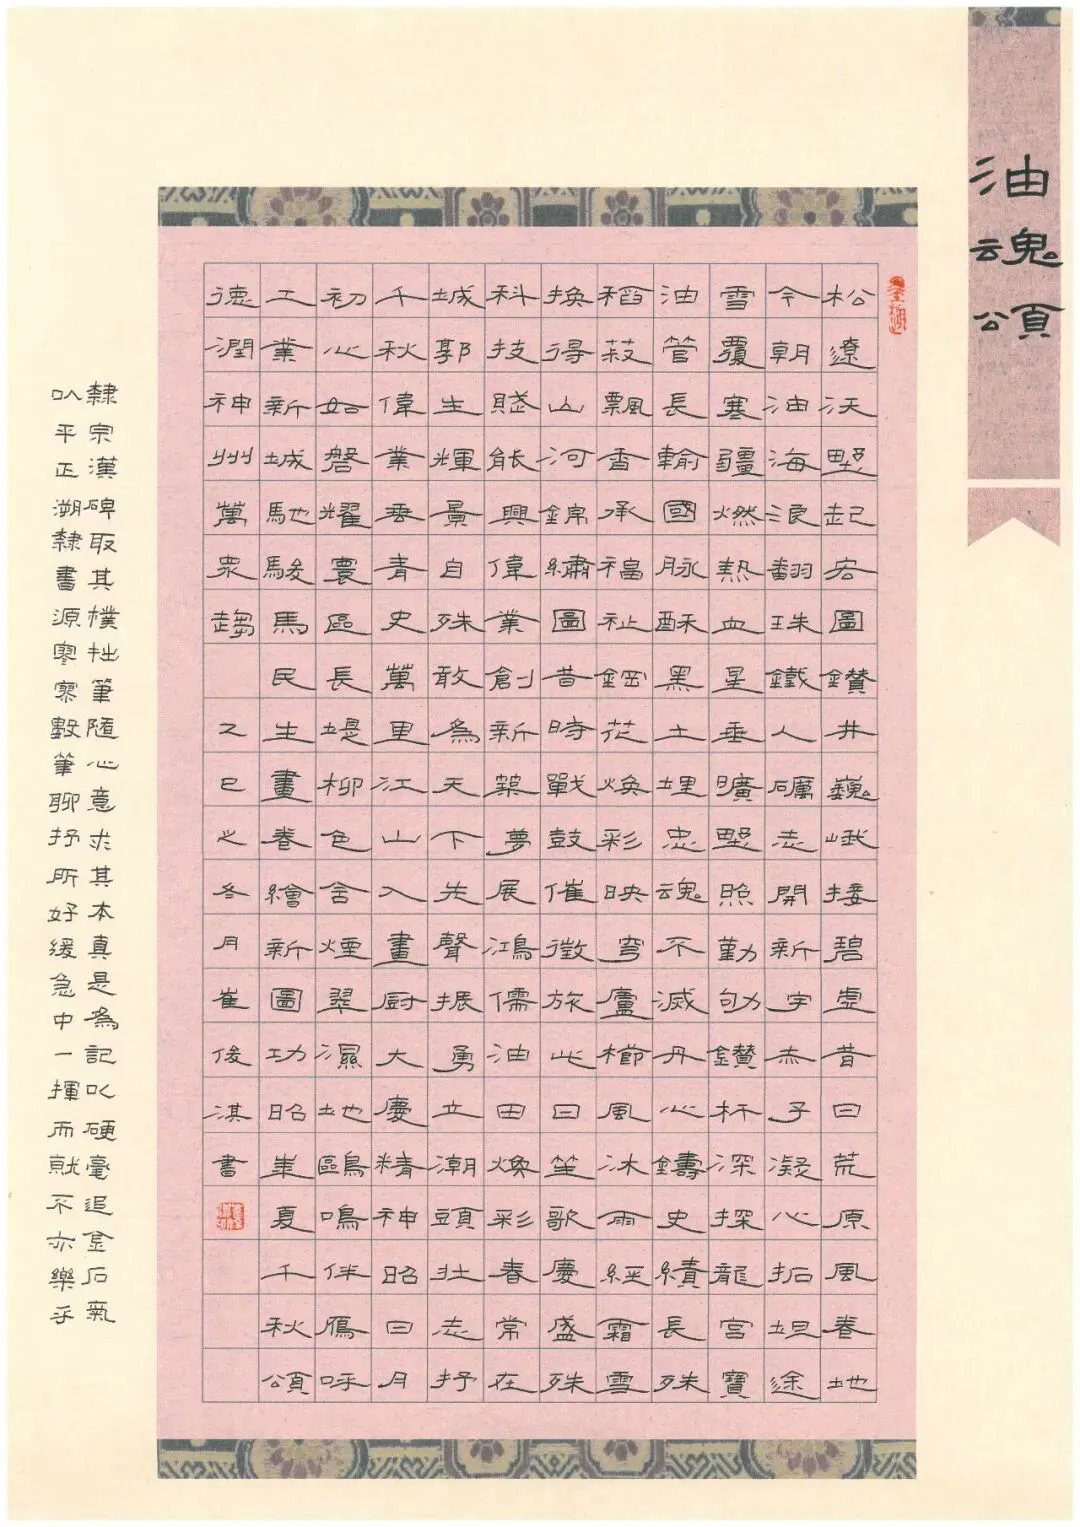 油魂頌
松遼沃野起宏圖鑽井巍峨接碧虛昔日荒原風卷地
今朝油海浪翻珠鐵人礪志開新宇赤子凝心拓坦途
雪覆寒疆燃熱血星垂曠野照勤劬鑽杆深探龍宮寶
油管長輸國脉酥黑土埋忠魂不滅丹心鑄史績長殊
稻菽飄香承福祉鋼花煥彩映穹廬櫛風沐雨經霜雪
換得山河錦繡圖昔時戰鼓催徵旅此日笙歌慶盛殊
科技賦能興偉業創新築夢展鴻儒油田煥彩春常在
城郭生輝景自殊敢為天下先聲振勇立潮頭壯志抒
千秋偉業垂青史萬里江山入畫廚大慶精神昭日月
初心如磐耀寰區長堤柳色含煙翠濕地鷗鳴伴雁呼
工業新城馳駿馬民生畫卷繪新圖功昭華夏千秋頌
德潤神州萬眾趨 乙巳之冬月崔俊淇書
隸宗漢碑取其樸拙筆隨心意求其本真是為記以硬毫追金石氣
以平正溯隸書源寥寥數筆聊抒所好緩急中一揮而就不亦樂乎